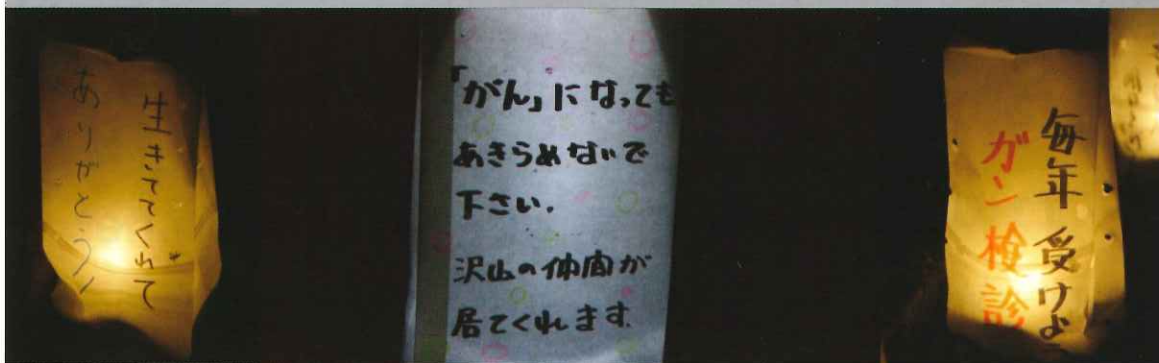 生きててくれて
ありがとう!
「がん」になっても
あきらめないで
下さい.
沢山の仲間が
居てくれます.
毎年 受けよう
ガン検診